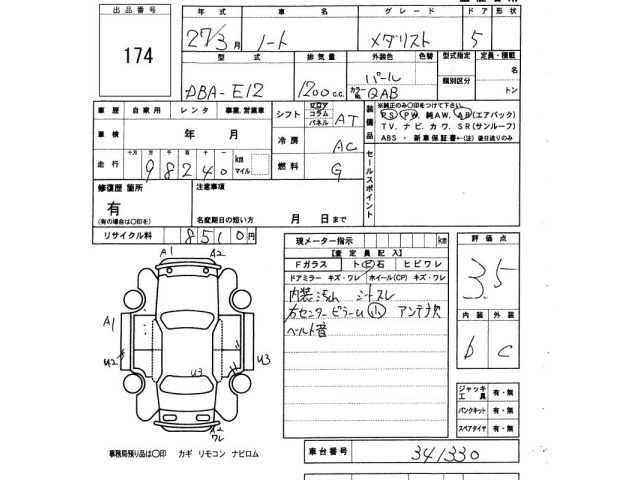 出品番号
174
年式 車名 グレード ドア 形状
27/3月 ノート メダリスト 5
型式 排気量 外装色 色替 型式指定 定員・積載
類別区分 名
トン
DBA-E12 1200c.c. パール カラーNo. QAB
車歴 自家用 レンタ 事業、営業車
シフト フロア コラム パネル AT
装備品
※純正のみ〇印をつけて下さい
PS PW 純AW. AB(エアバック)
TV. ナビ. カワ. SR(サンルーフ)
ABS ・ 新車保証書←(注)後日送りのみ
車検 年 月
冷房 AC
走行 十万 万 千 百 十 一 km マイル
98240
燃料 G
セールスポイント
修復歴 箇所
有
(有の場合は〇印を)
注意事項
名変期日の短い方 月 日まで
リサイクル料 8510円
現メーター指示 km
【査定員記入】
Fガラス ト ヒ 石 ヒビワレ
ドアミラー キズ・ワレ ホイール(CP) キズ・ワレ
内装汚れ シートスレ
センターピラーU 小 アンテナ欠
ベルト音
評価点
3.5
内装 外装
b C
ジャッキ 工具 有・無
パンクキット 有・無
スペアタイヤ 有・無
車台番号 341330
A1 A2
A1
U2 U3 U3
A2
ワレ
事務局預り品は〇印 カギ リモコン ナビロム